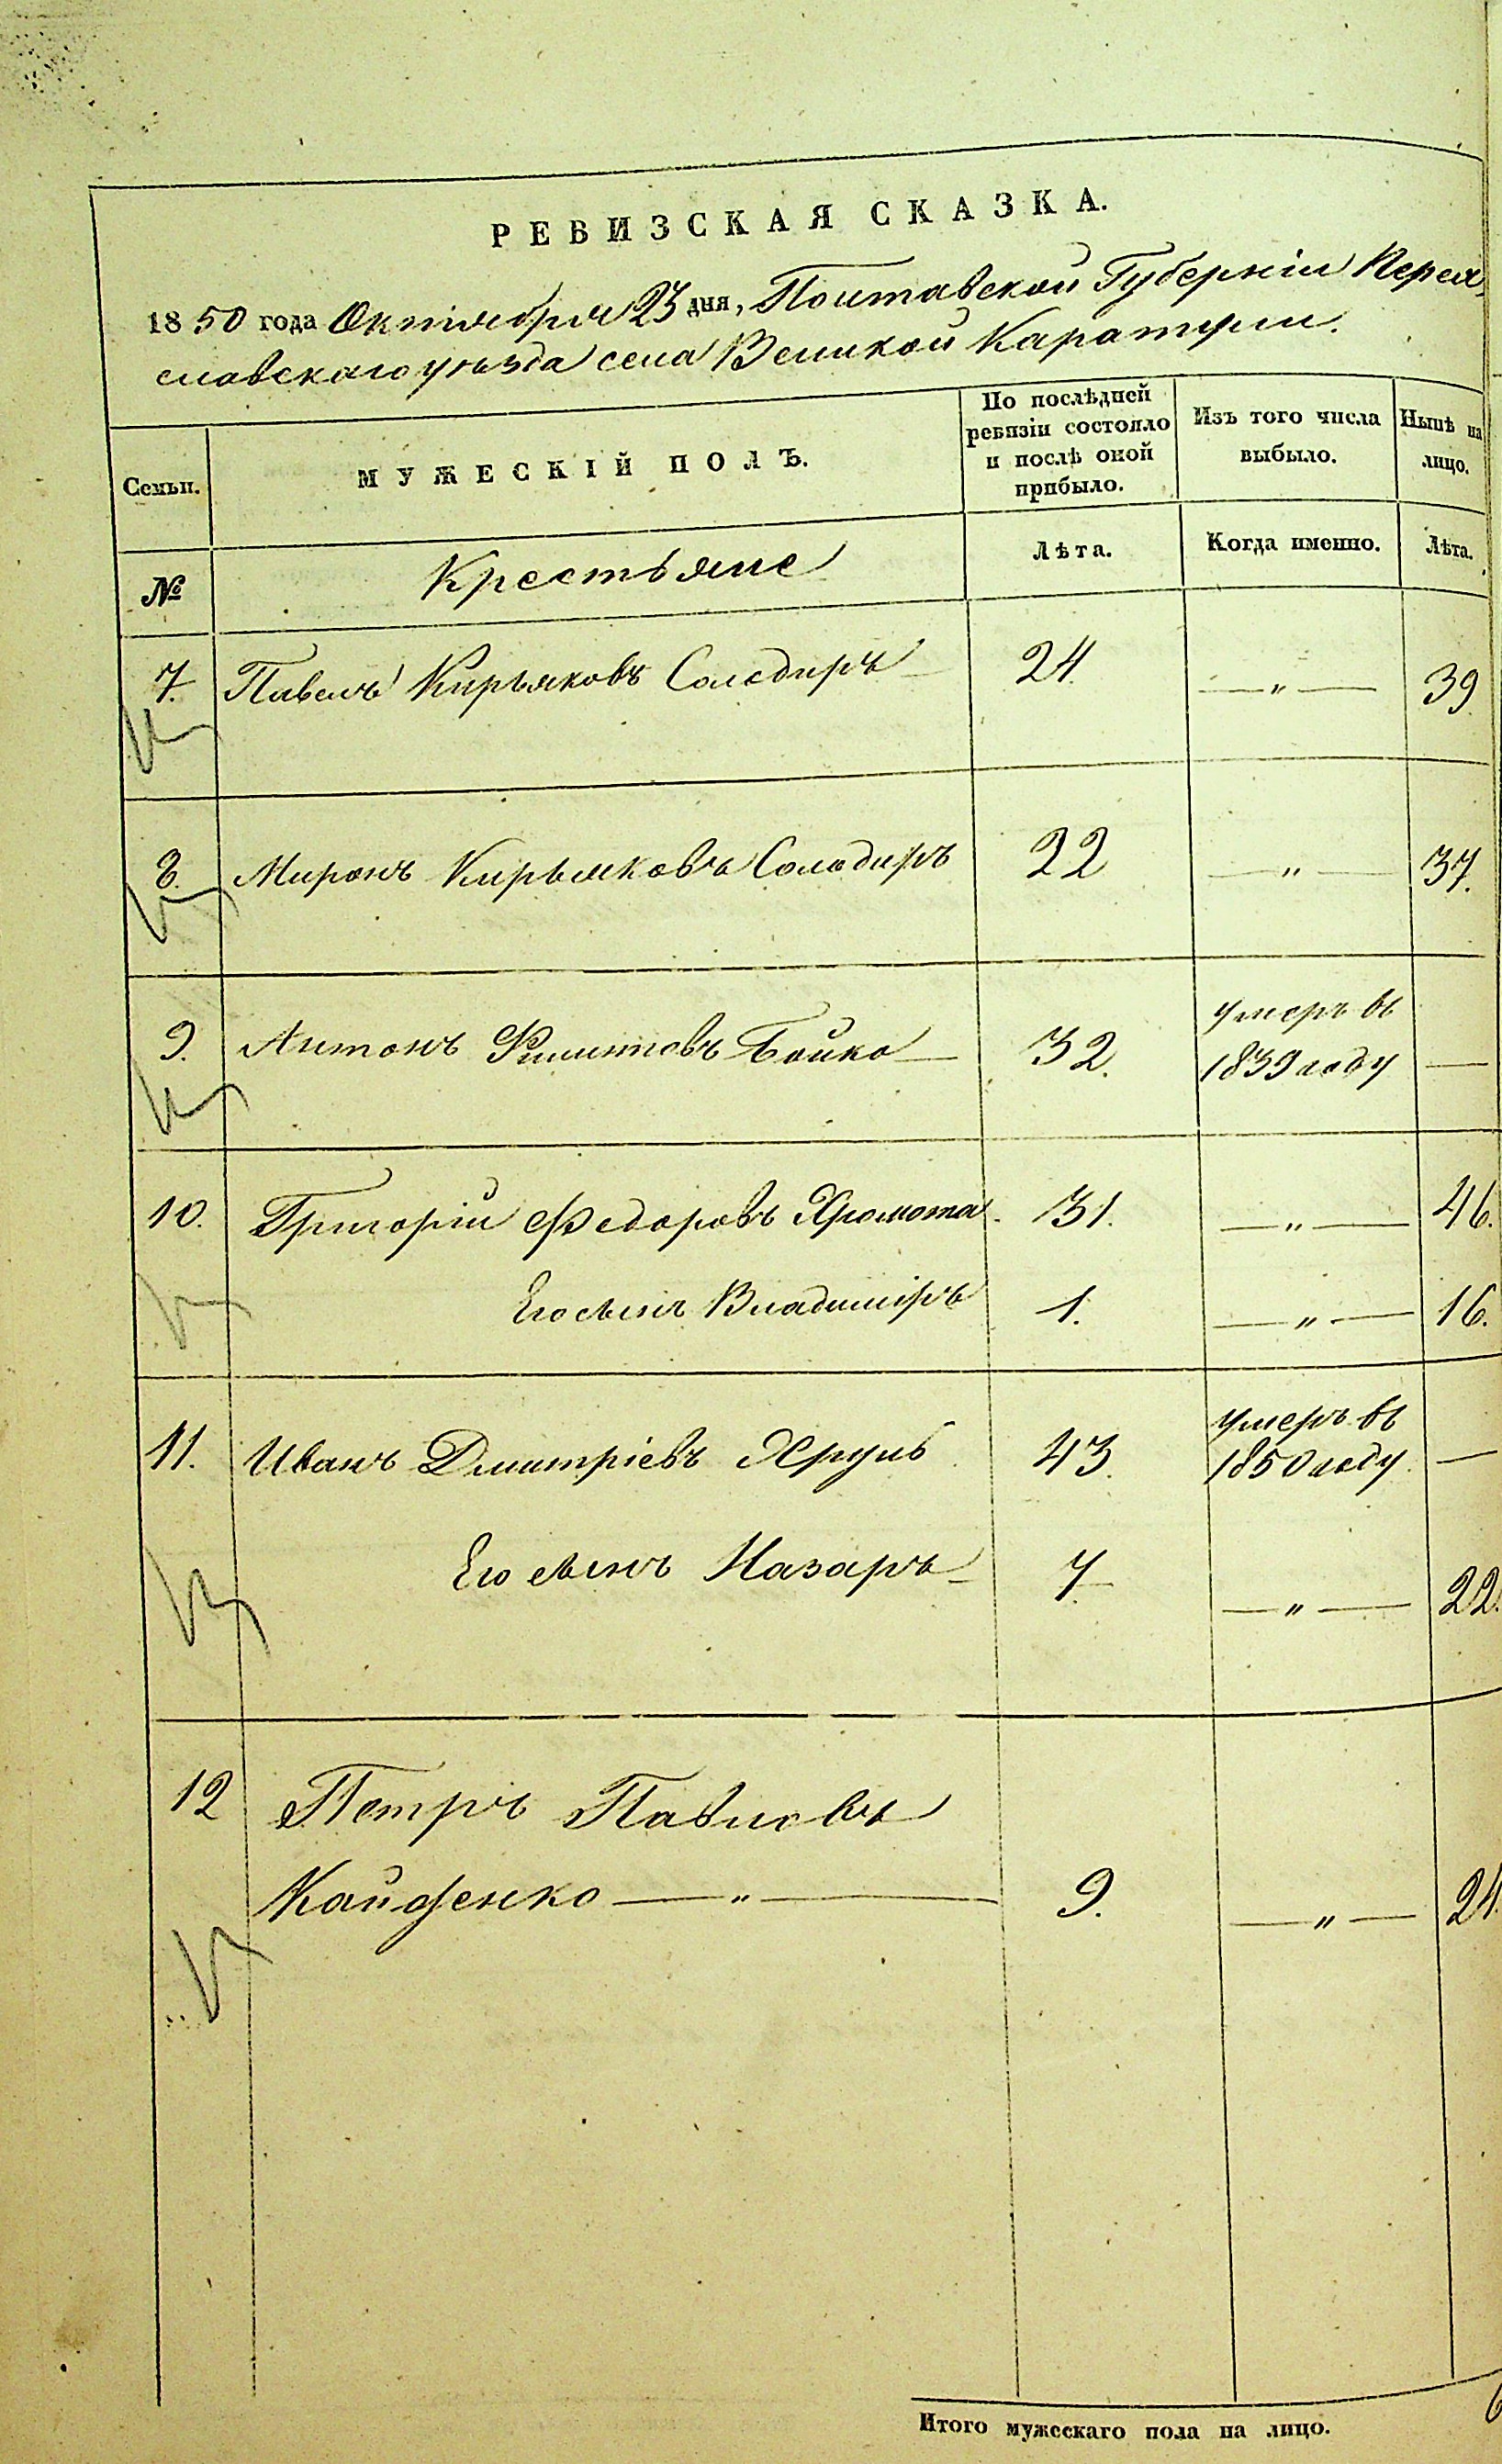 РЕВИЗСКАЯ СКАЗКА.
1850 года Октября 23 дня, Полтавской Губерніи Перея
славскаго уѣзда села Великой Каратули.
Семьи.
МУЖЕСКІЙ ПОЛЪ.
По послѣдней
ревизіи состояло
и послѣ оной
прибыло.
Изъ того числа
выбыло.
Нынѣ на
лицо.
№
Крестьяне
Лѣта.
Когда именно.
Лѣта.
7. Павелъ Кирьяковъ Солодиръ 24. — „ — 39
8. Миронъ Кирьяковъ Солодиръ 22 — „ — 37.
9. Антонъ Филиповъ Бойко — 32. умеръ въ
1839 году —
10. Григорій Федоровъ Хромота. 31. — „ — 46.
Его сынъ Владиміръ 1. — „ — 16.
11. Иванъ Дмитріевъ Хруль 43. умеръ въ
1850 году. —
Его сынъ Назаръ — 7. — „ — 22.
12 Петръ Павловъ
— „ — 9. — „ — 24.
Итого мужескаго пола на лицо.